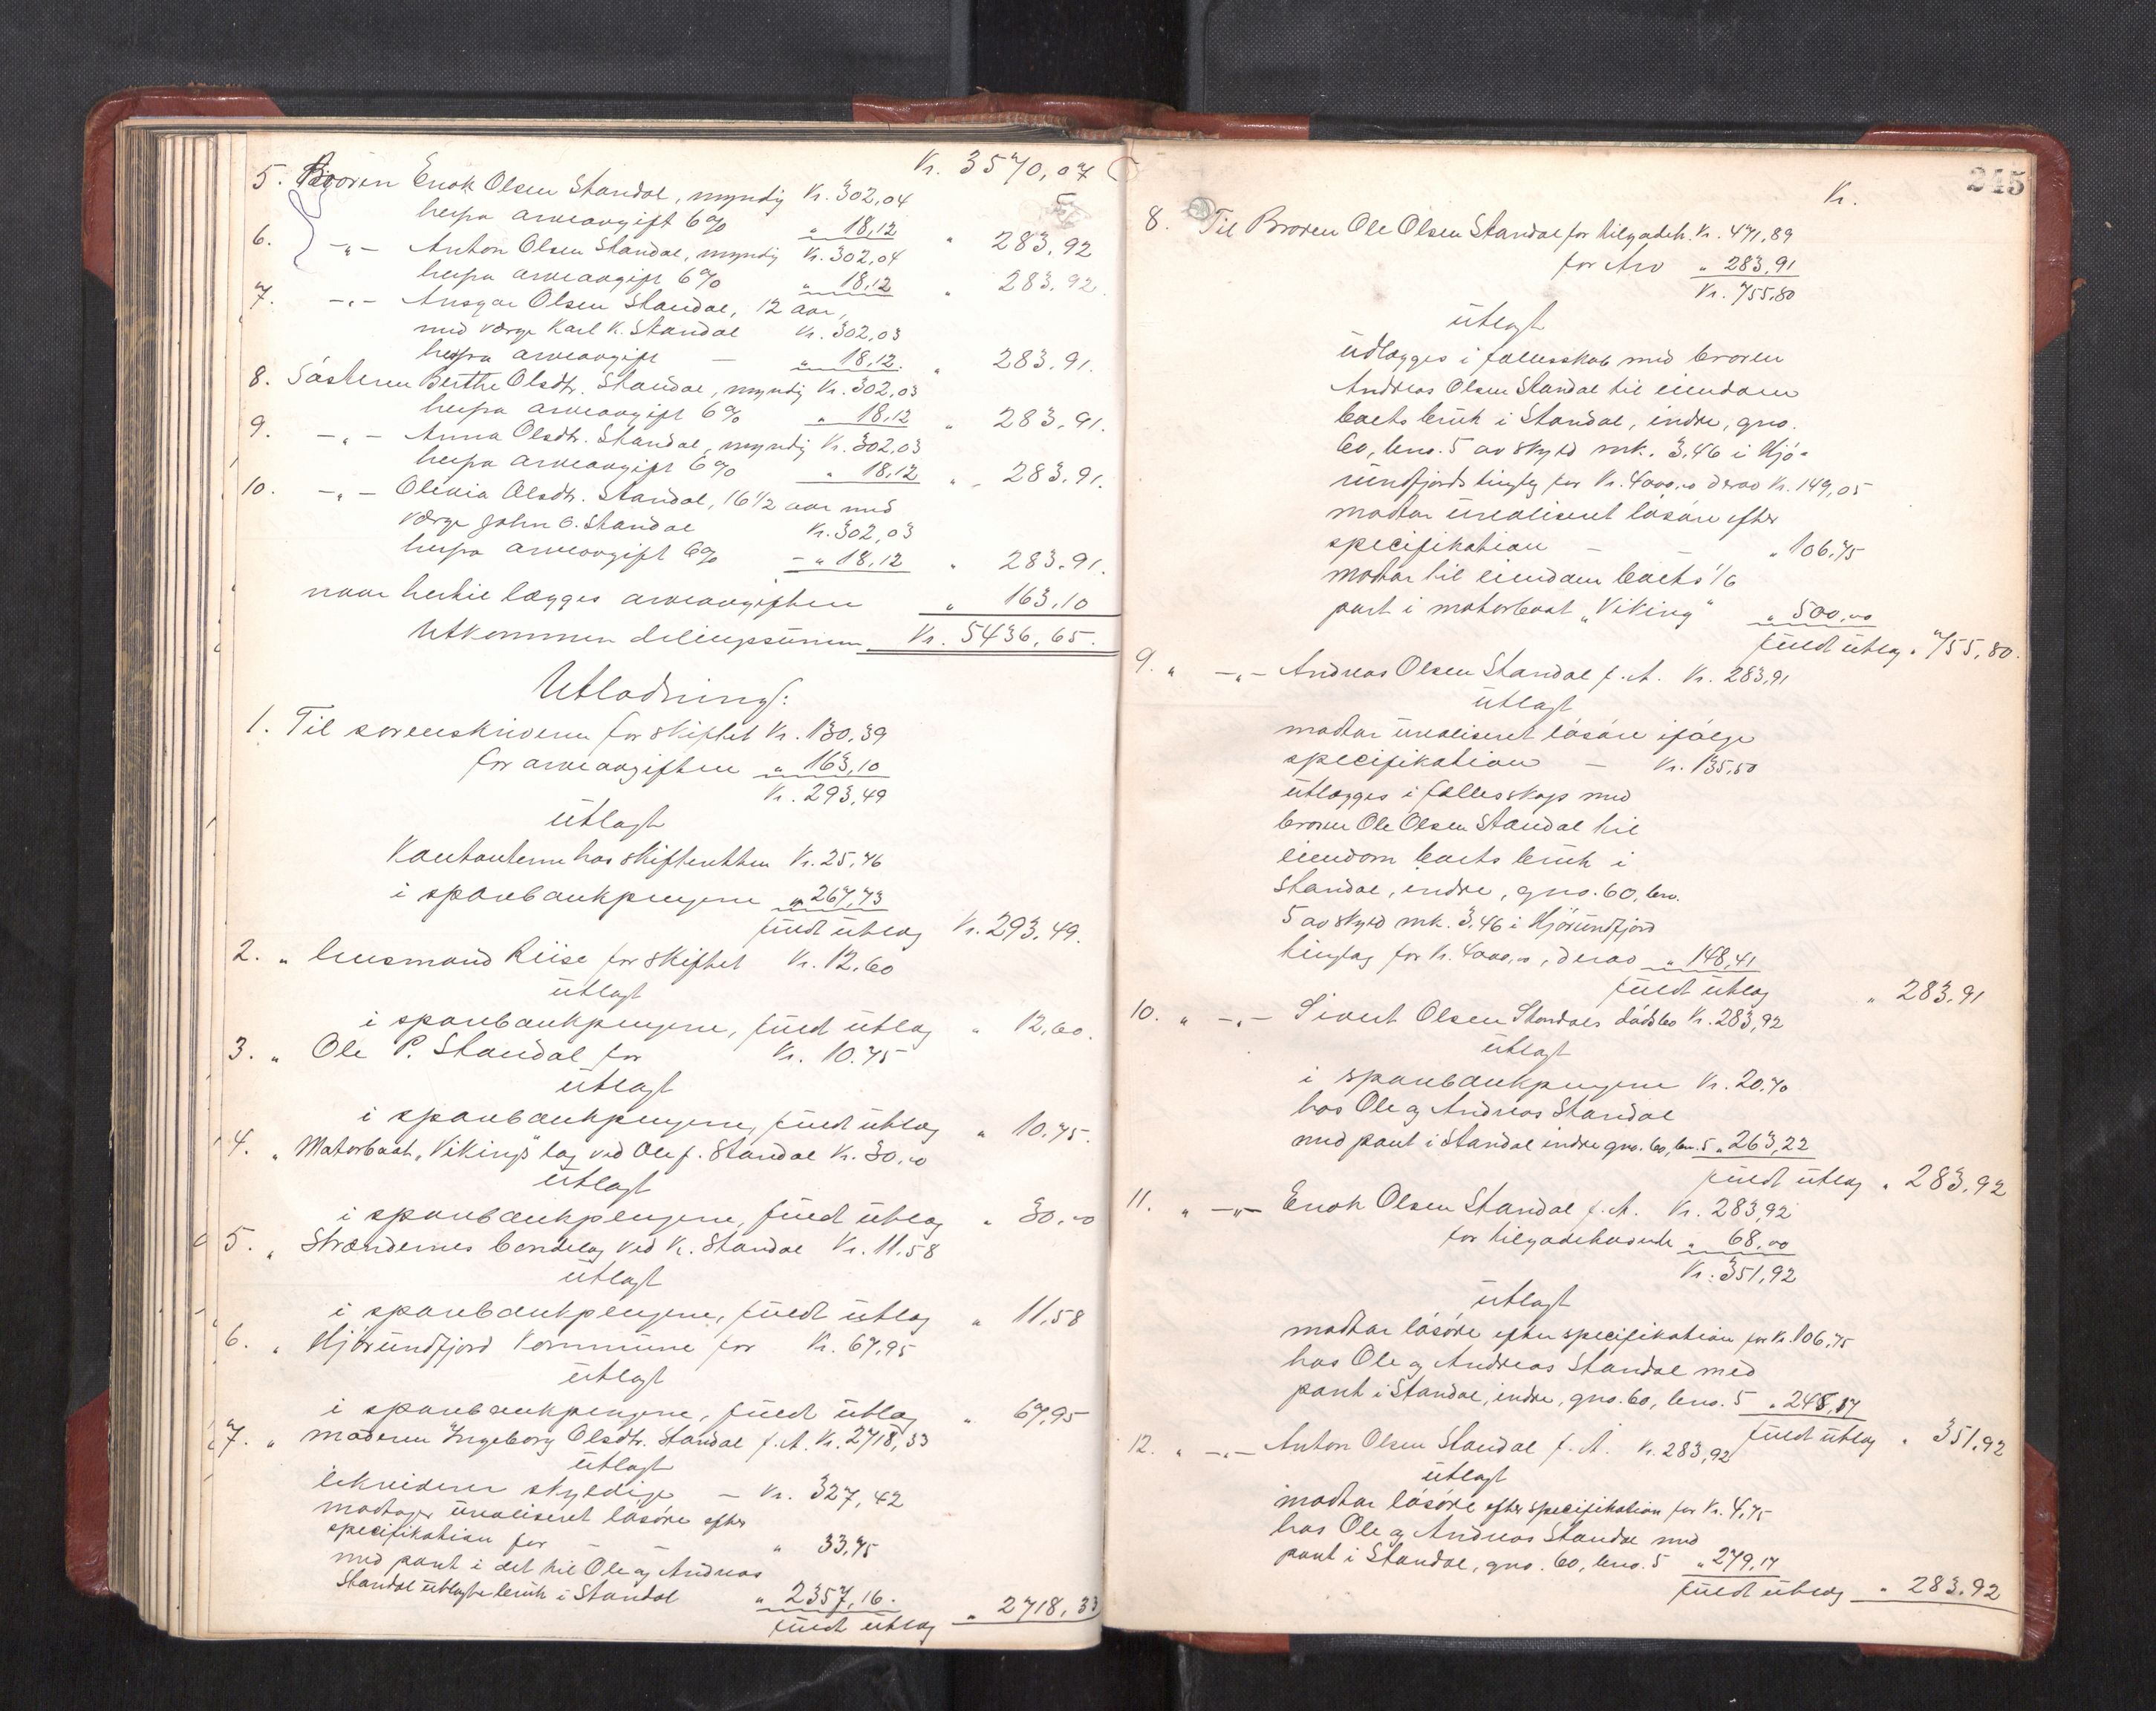 Kr. 3570,07
5. Broren Enok Olsen Standal, myndig Kr. 302,04
herfra arveavgift 6% " 18,12 " 283,92
6. -"- Anton Olsen Standal, myndig Kr. 302,04
herfra arveavgift 6% " 18,12 " 283,92
7. -"- Ansgar Olsen Standal, 12 aar,
med værge Karl K. Standal Kr. 302,03
herfra arveavgift — " 18,12. " 283,91.
8. Søsteren Berthe Olsdtr. Standal, myndig Kr. 302,03
herfra arveavgift 6% " 18,12 " 283,91.
9. -"- Anna Olsdtr. Standal, myndig Kr. 302,03
herfra arveavgift 6% " 18,12 " 283,91.
10. -"- Olivia Olsdtr. Standal, 16 1/2 aar med
værge John O. Standal Kr. 302,03
herfra arveavgift 6% - " 18,12 " 283,91.
naar hertil lægges arveavgiften " 163,10
Utkommer delingssummen Kr. 5436,65.
Utlodning:
1. Til sorenskriveren for skiftet Kr. 130,39
for arveavgiften " 163,10
Kr. 293,49
utlagt
Kontanterne hos skifteretten Kr. 25,76
i sparebankpengene " 267,73
fuldt utlæg Kr. 293,49.
2. " lensmand Riise for skiftet Kr. 12,60
utlagt
i sparebankpengene, fuldt utlæg " 12,60.
3. " Ole P. Standal for Kr. 10,75
utlagt
i sparebankpengene, fuldt utlæg " 10,75.
4. " Motorbaat "Viking"s lag ved Ole J. Standal Kr. 30,00
utlagt
i sparebankpengene, fuldt utlæg " 30,00
5. " Strændernes lag ved K. Standal Kr. 11,58
utlagt
i sparebankpengene, fuldt utlæg " 11,58
6. " Hjørundfjord kommune for Kr. 67,95
utlagt
i sparebankpengene, fuldt utlæg " 67,95
7. " moderen Ingeborg Olsdtr. Standal f. A. Kr. 2718,33
utlagt
skyldige — Kr. 327,42
modtager urealiseret løsøre efter
specifikation for — — " 33,75
med pant i det til Ole og Andreas
Standal utlagte bruk i Standal " 2357,16.
fuldt utlæg " 2718,33
245
Kr.
8. Til Broren Ole Olsen Standal for tilgodeh. Kr. 471,89
for Arv " 283,91
Kr. 755,80
utlagt
udlægges i fællesskab med broren
Andreas Olsen Standal til eiendom
boets bruk i Standal, indre, gno.
60, bno. 5 av skyld mk. 3,46 i Hjø-
rundfjord tinglag for Kr. 4000,00 derav Kr. 149,05
modtar urealiseret løsøre efter
specifikation — — " 106,75
modtar til eiendom boets 1/6
part i motorbaat "Viking" " 500,00
fuldt utlæg " 755,80.
9. " -"- Andreas Olsen Standal f. A. Kr. 283,91
utlagt
modtar urealiseret løsøre ifølge
specifikation — Kr. 135,50
utlægges i fællesskap med
broren Ole Olsen Standal til
eiendom boets bruk i
Standal, indre, gno. 60, bno.
5 av skyld mk. 3,46 i Hjørundfjord
tinglag for Kr. 4000,00, derav " 148,41
fuldt utlæg " 283,91
10. " -"- Sivert Olsen Standals dødsbo Kr. 283,92
utlagt
i sparebankpengene Kr. 20,70
hos Ole og Andreas Standal
med pant i Standal indre gno. 60, bno. 5 " 263,22
fuldt utlæg " 283,92
11. " -"- Enok Olsen Standal f. A. Kr. 283,92
for tilgodehavende " 68,00
Kr. 351,92
utlagt
modtar løsøre efter specifikation for Kr. 106,75
hos Ole og Andreas Standal med
pant i Standal, indre, gno. 60, bno. 5 " 245,17
fuldt utlæg " 351,92
12. " -"- Anton Olsen Standal f. A. Kr. 283,92
utlagt
modtar løsøre efter specifikation for Kr. 4,75
hos Ole og Andreas Standal med
pant i Standal, gno. 60, bno. 5 " 279,17
fuldt utlæg " 283,92